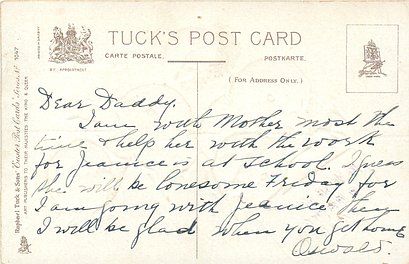 TUCK'S POST CARD
CARTE POSTALE.
POSTKARTE.
BY APPOINTMENT
(FOR ADDRESS ONLY.)
Raphael Tuck & Sons' Easter Post Cards Series No. 1047
ART PUBLISHERS TO THEIR MAJESTIES THE KING & QUEEN
Dear Daddy.
I am with Mother most the
time & help her with the work
for Jeanice is at school. I guess
she will be lonesome Friday for
I am going with Jeanice then
I will be glad when you get home
Oswald.